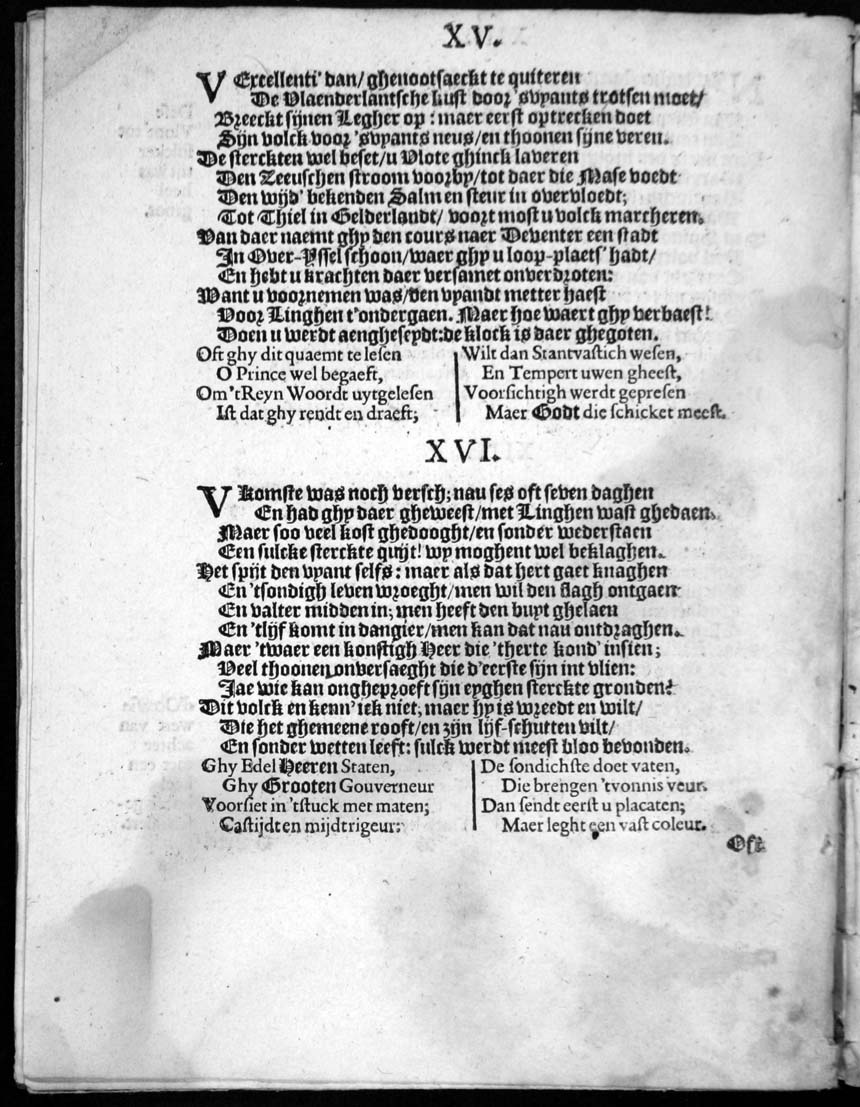 XV.
V Excellenti' dan/ ghenootsaeckt te quiteren
De Vlaenderlantsche kust door 'svyants trotsen moet/
Breeckt sijnen Legher op: maer eerst optrecken doet
Sijn volck voor 'svyants neus/en thoonen sijne veren.
De sterckten wel beset/u Vlote ghinck laveren
Den Zeeuschen stroom voorby/tot daer die Mase voedt
Den wijd' bekenden Salm en steur in overvloedt;
Tot Thiel in Gelderlandt/ voort most u volck marcheren.
Van daer naemt ghy den cours naer Deventer een stadt
In Over-Yssel schoon/waer ghy u loop-plaets' hadt/
En hebt u krachten daer versamet onverdroten:
Want u voornemen was/den vyandt metter haest
Voor Linghen t'ondergaen. Maer hoe waert ghy verbaest!
Doen u werdt aengheseydt:de klock is daer ghegoten.
Oft ghy dit quaemt te lesen
O Prince wel begaeft,
Om'tReyn Woordt uytgelesen
Ist dat ghy rendt en draeft;
Wilt dan Stantvastich wesen,
En Tempert uwen gheest,
Voorsichtigh werdt gepresen
Maer Godt die schicket meest.
XVI.
V komste was noch versch; nau ses oft seven daghen
En had ghy daer gheweest/met Linghen wast ghedaen.
Maer soo veel kost ghedooght/en sonder wederstaen
Een sulcke sterckte quijt! wy moghent wel beklaghen.
Het spijt den vyant selfs: maer als dat hert gaet knaghen
En 'tsondigh leven wroeght/men wil den slagh ontgaen
En valter midden in; men heeft den buyt ghelaen
En 'tlijf komt in dangier/men kan dat nau ontdraghen.
Maer 'twaer een konstigh Heer die 'therte kond' insien;
Veel thoonen onversaeght die d'eerste sijn int vlien:
Jae wie kan ongheproeft sijn eyghen sterckte gronden?
Dit volck en kenn' ick niet; maer hy is wreedt en wilt/
Die het ghemeene rooft/en zijn lijf-schutten vilt/
En sonder wetten leeft: sulck werdt meest bloo bevonden.
Ghy Edel Heeren Staten,
Ghy Grooten Gouverneur
Voorsiet in 'tstuck met maten;
Castijdt en mijdt rigeur:
De sondichste doet vaten,
Die brengen 'tvonnis veur.
Dan sendt eerst u placaten;
Maer leght een vast coleur.
Oft